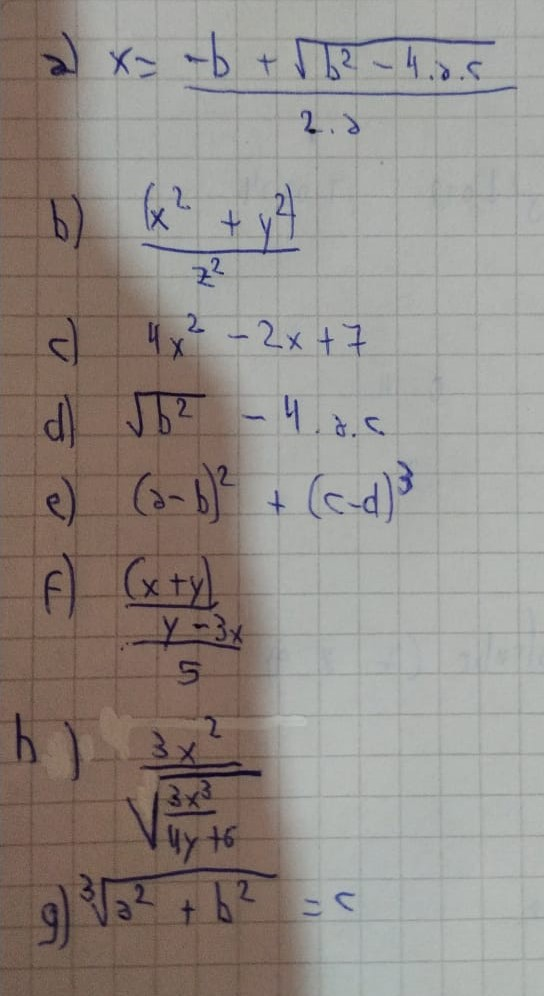 a) x = -b + √(b² - 4.a.c)
2.a
b) (x² + y²)
z²
c) 4x² - 2x + 7
d) √b² - 4.a.c
e) (a-b)² + (c-d)³
f) (x+y)
y - 3x
5
h) 3x²
√(3x³
4y+6)
g) ³√(a² + b²) = c